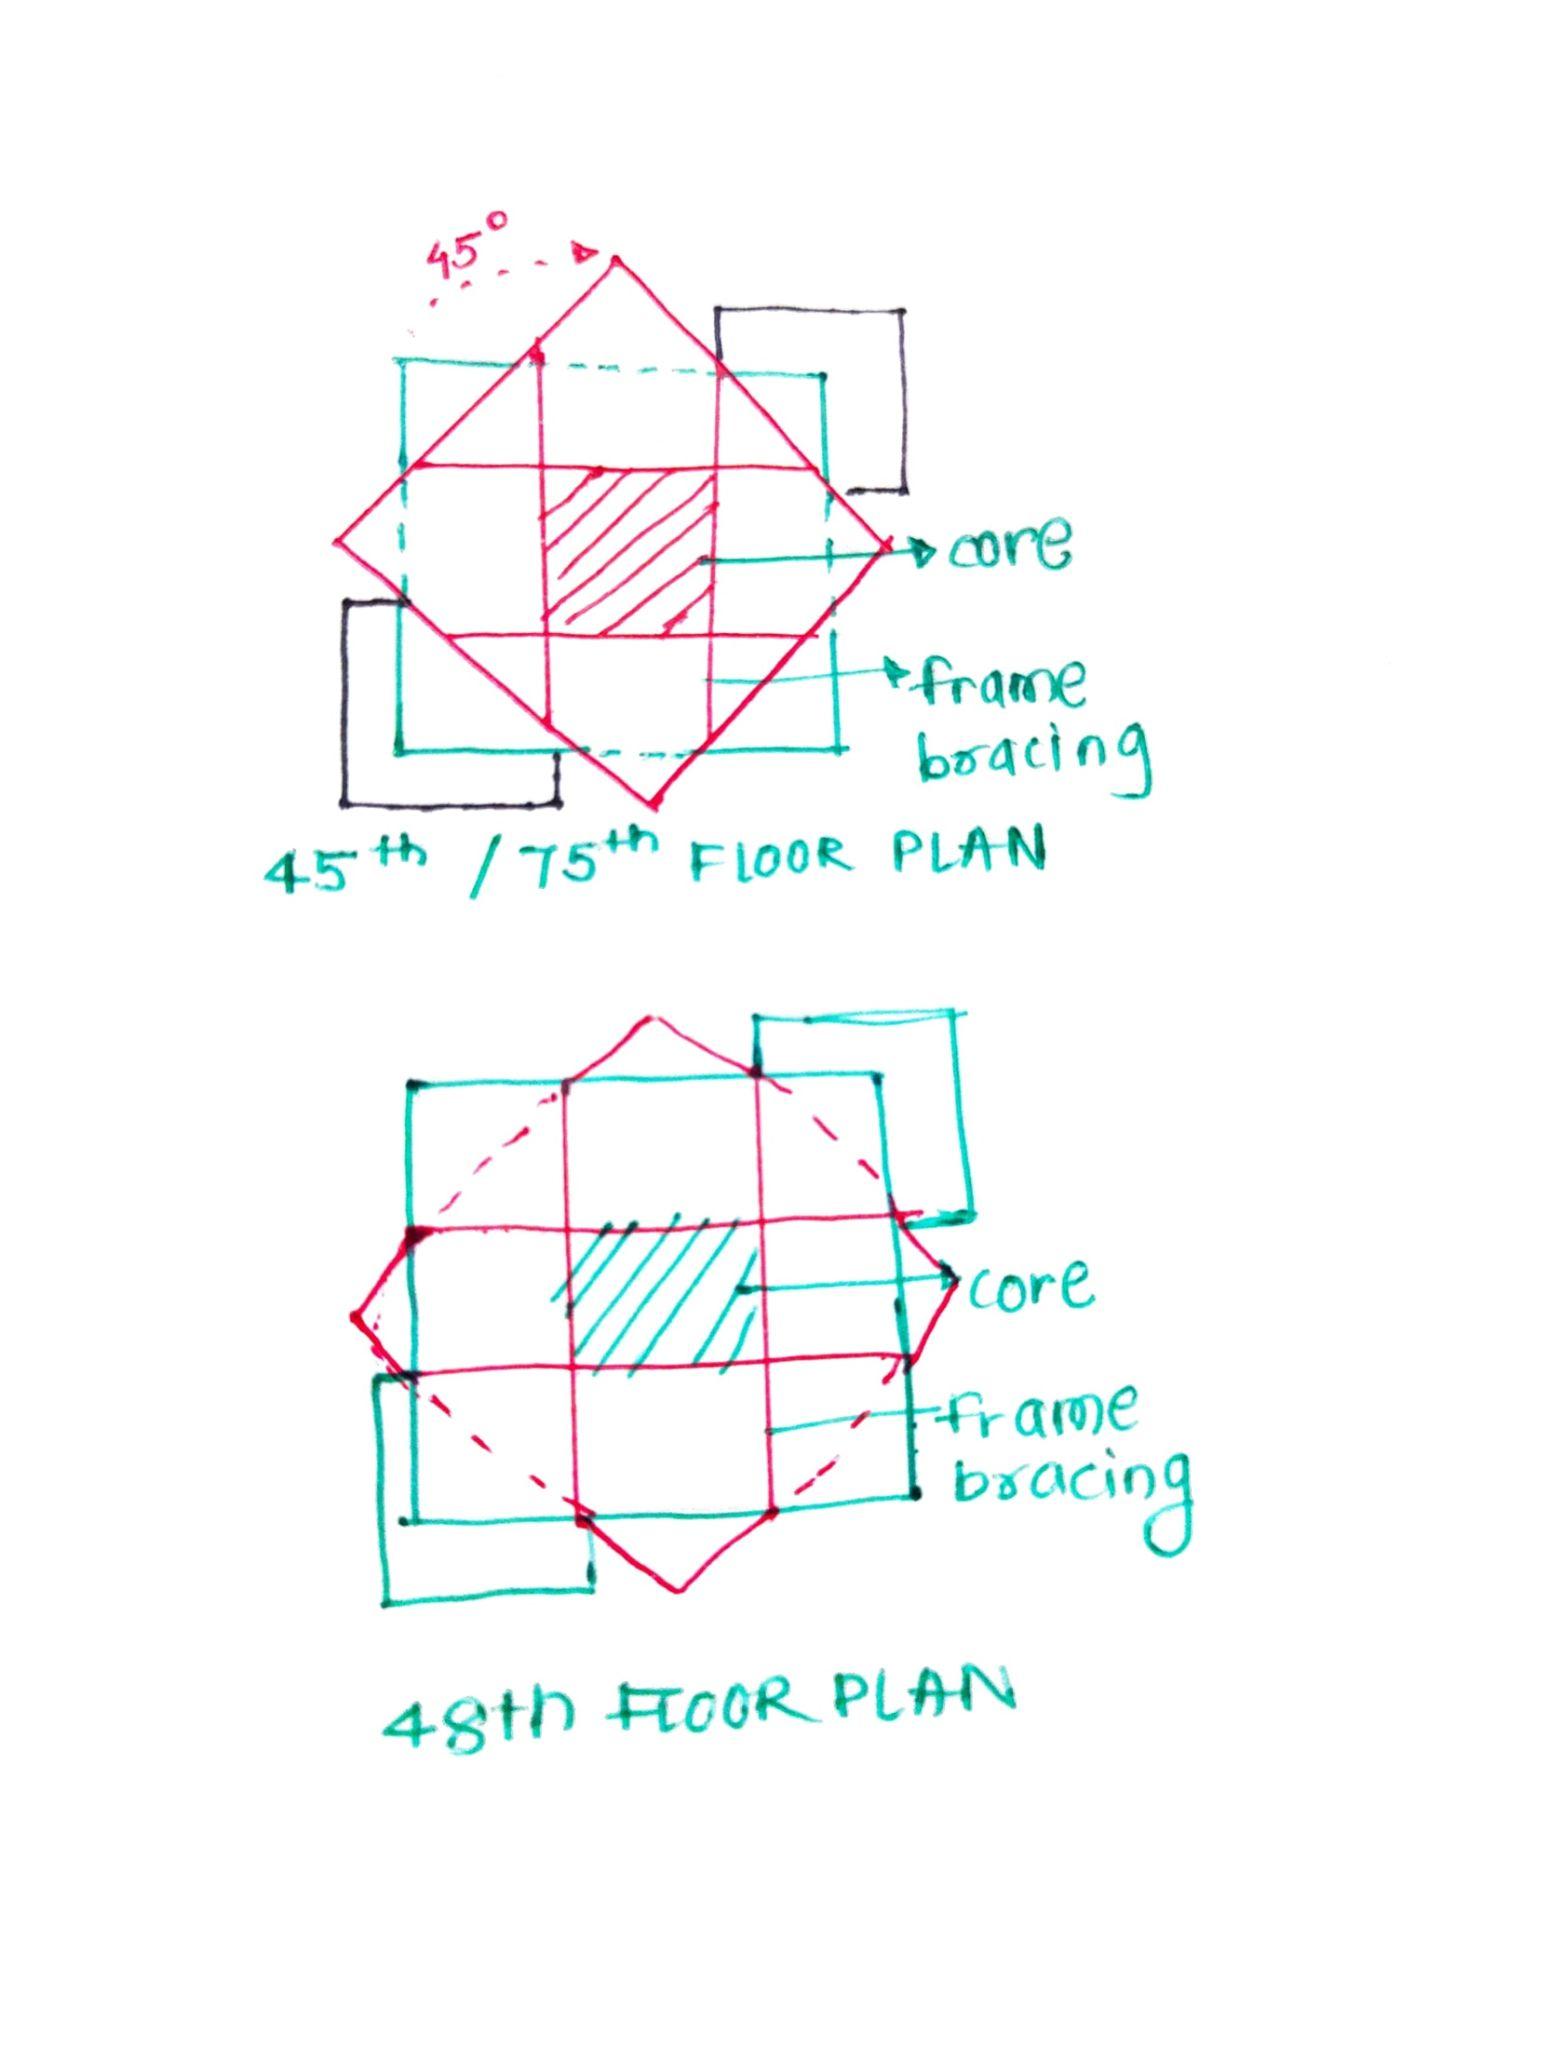 45°
core
frame
bracing
45th / 75th FLOOR PLAN
core
frame
bracing
48th FLOOR PLAN